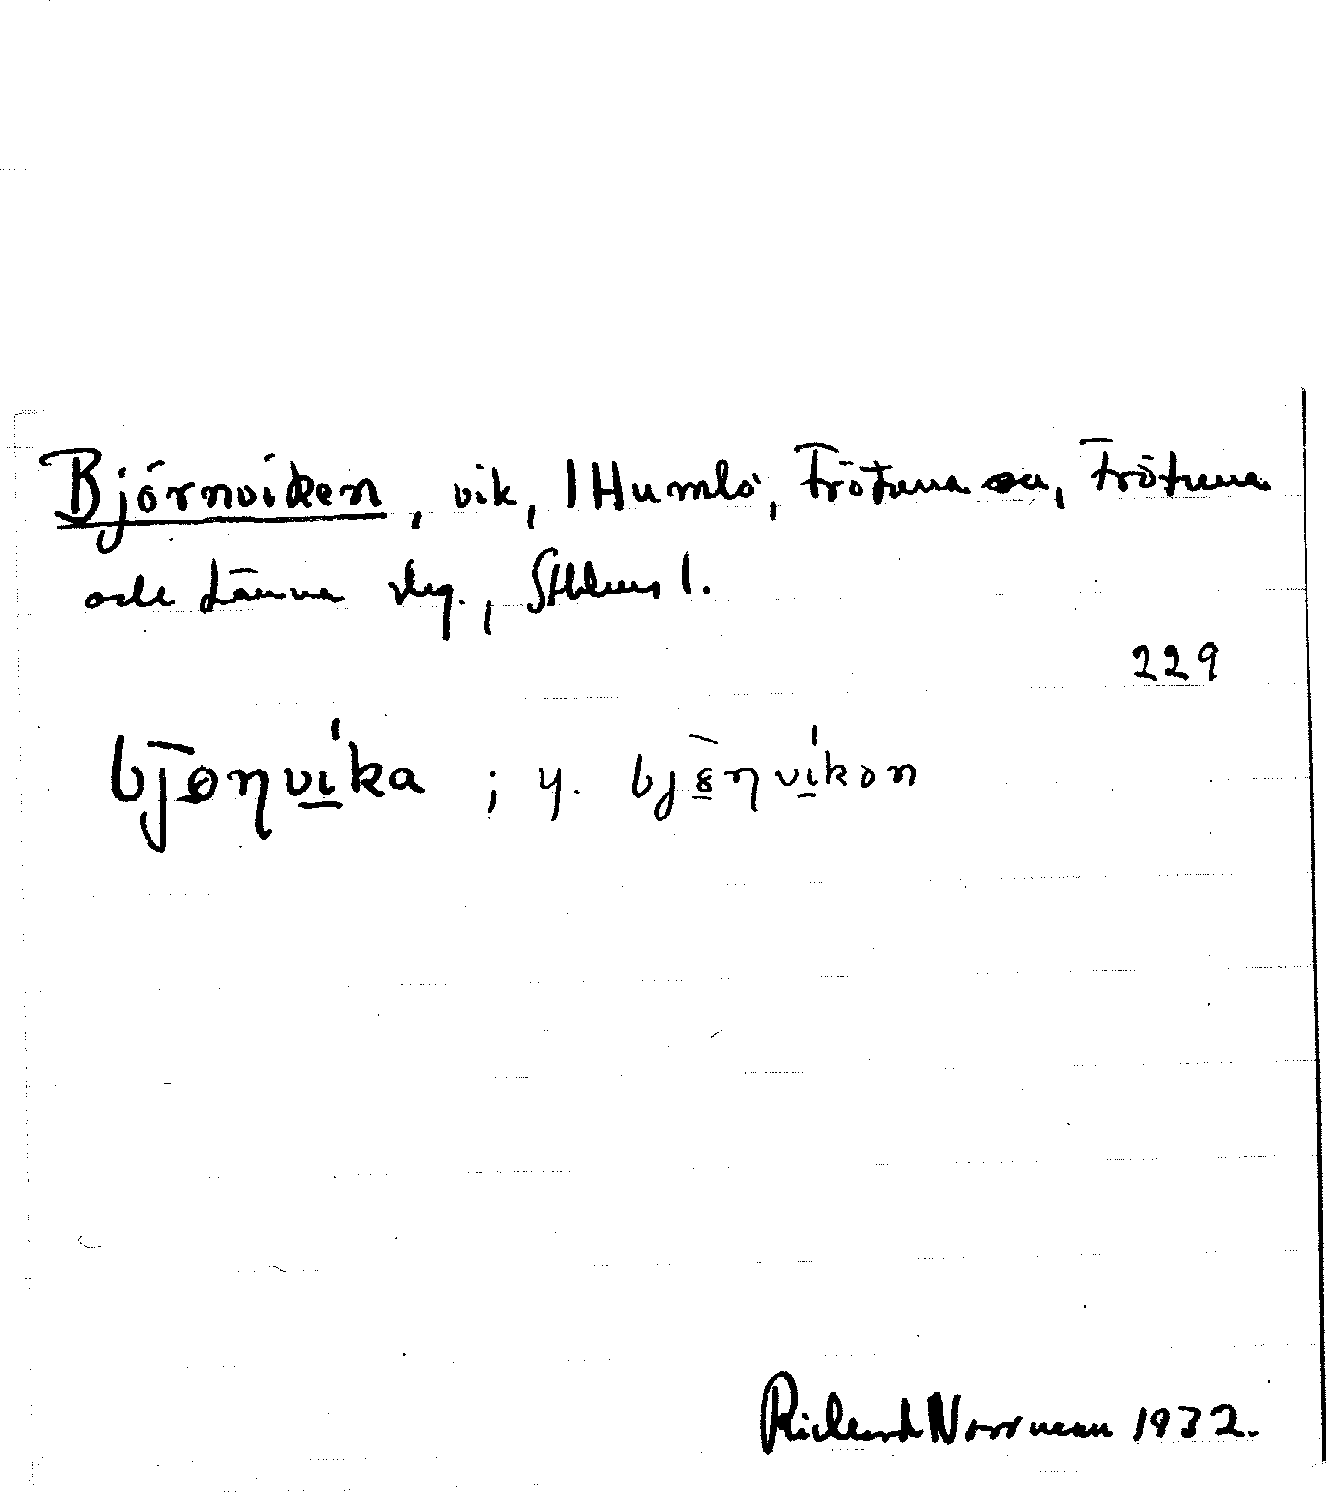 Björnviken, vik, 1 Humlö, Frötuna sn, Frötuna
och Länna skg., Sthlms l.
229
bjøɳvika ; y. bjɵɳvikən
Richard Norrman 1932.